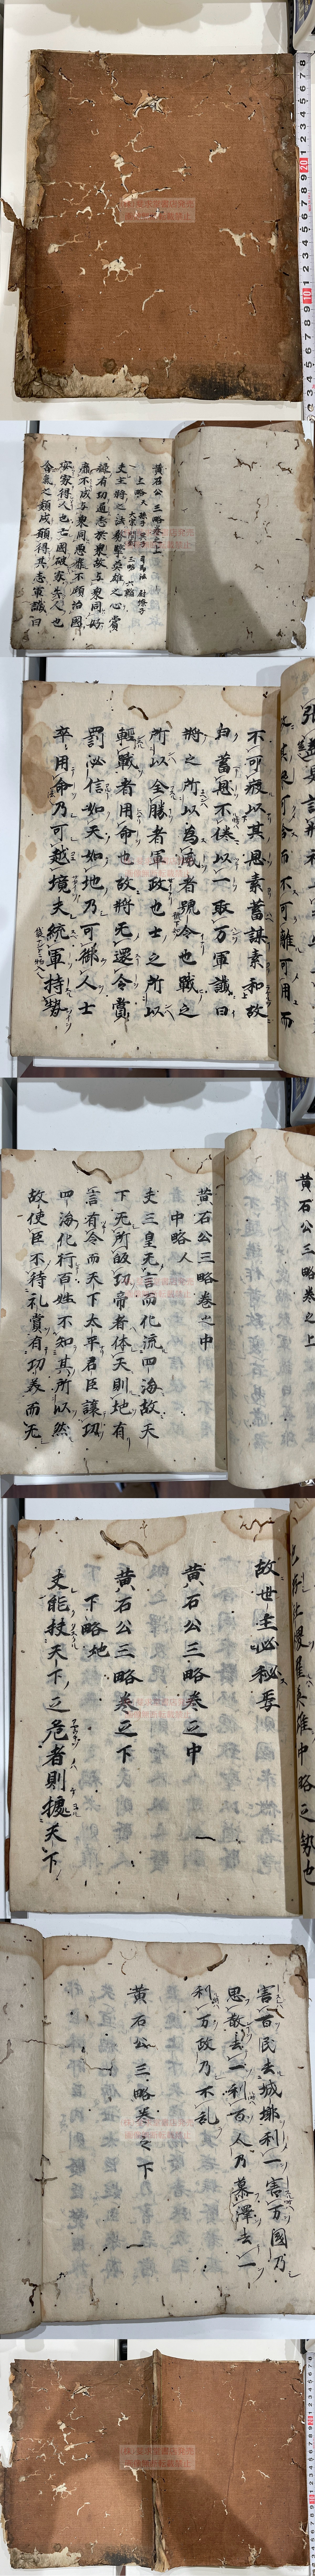 黄石公三略巻之上
上略人
孫子 呉子 司馬法 尉繚子
大宗問對 三略 六韜
夫主将之法務擥英雄之心賞
禄有功通志於衆故与衆同好
靡不成与衆同悪靡不傾治國
安家得人也亡國破家失人也
含氣之類咸願得其志軍讖曰
不可疲以其恩素蓄謀素和故
曰蓄恩不倦以一取万軍讖曰
将之所以為威者號令也戦之
所以全勝者軍政也士之所以
輕戦者用命也故将无還令賞
罰必信如天如地乃可御人士
卒用命乃可越境夫統軍持勢
黄石公三略巻之上
黄石公三略巻之中
中略人
夫三皇无言而化流四海故天
下无所皈功帝者体天則地有
言有令而天下太平君臣譲功
四海化行百姓不知其所以然
故使臣不待礼賞有功美而无
故世主必秘焉
黄石公三略巻之中
黄石公三略巻之下
下略地
夫能扶天下之危者則攄天下
害百民去城墎利一害万國乃
思散去一利百人乃慕澤去一
利万政乃不乱
黄石公三略巻之下